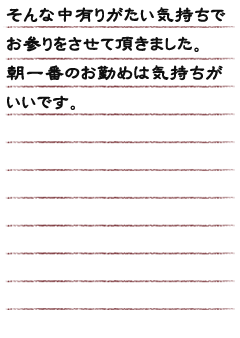 そんな中有りがたい気持ちで
お参りをさせて頂きました。
朝一番のお勤めは気持ちが
いいです。